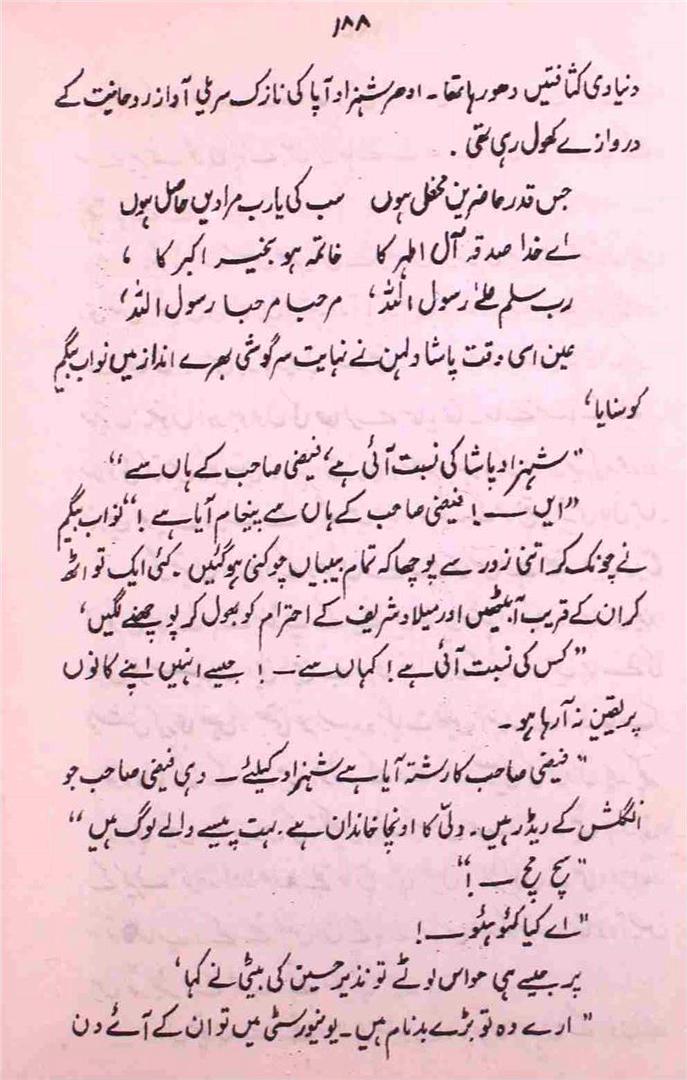 ۱۸۸
دنیاوی کثافتیں دھو رہا تھا۔ ادھر شہزاد آپا کی نازک سریلی آواز روحانیت کے
دروازے کھول رہی تھی۔
جس قدر حاضرین محفل ہوں سب کی یارب مرادیں حاصل ہوں
اے خدا صدقہ آل اطہر کا خاتمہ ہو بخیر اکبر کا ،
رب سلم علیٰ رسول اللہ، مرحبا مرحبا رسول اللہ،
عین اسی وقت پاشا دلہن نے نہایت سرگوشی بھرے انداز میں نواب بیگم
کو سنایا،
"شہزاد پاشا کی نسبت آئی ہے، فیضی صاحب کے ہاں سے"
"ایں ــــ! فیضی صاحب کے ہاں سے پیغام آیا ہے!" نواب بیگم
نے چونک کر اتنی زور سے پوچھا کہ تمام بیبیاں چوکنی ہو گئیں۔ کئی ایک تو اٹھ
کر ان کے قریب آ بیٹھیں اور میلاد شریف کے احترام کو بھول کر پوچھنے لگیں،
"کس کی نسبت آئی ہے! کہاں سے ــ! جیسے انہیں اپنے کانوں
پر یقین نہ آ رہا ہو۔
"فیضی صاحب کا رشتہ آیا ہے شہزاد کیلئے۔ وہی فیضی صاحب جو
انگلش کے ریڈر ہیں۔ دلّی کا اونچا خاندان ہے۔ بہت پیسے والے لوگ ہیں"
"سچ مچ ــ!"
"اے کیا کئو ہئو ــ!
پر جیسے ہی حواس لوٹے تو نذیر حسین کی بیٹی نے کہا،
"ارے وہ تو بڑے بدنام ہیں۔ یونیورسٹی میں تو ان کے آئے دن